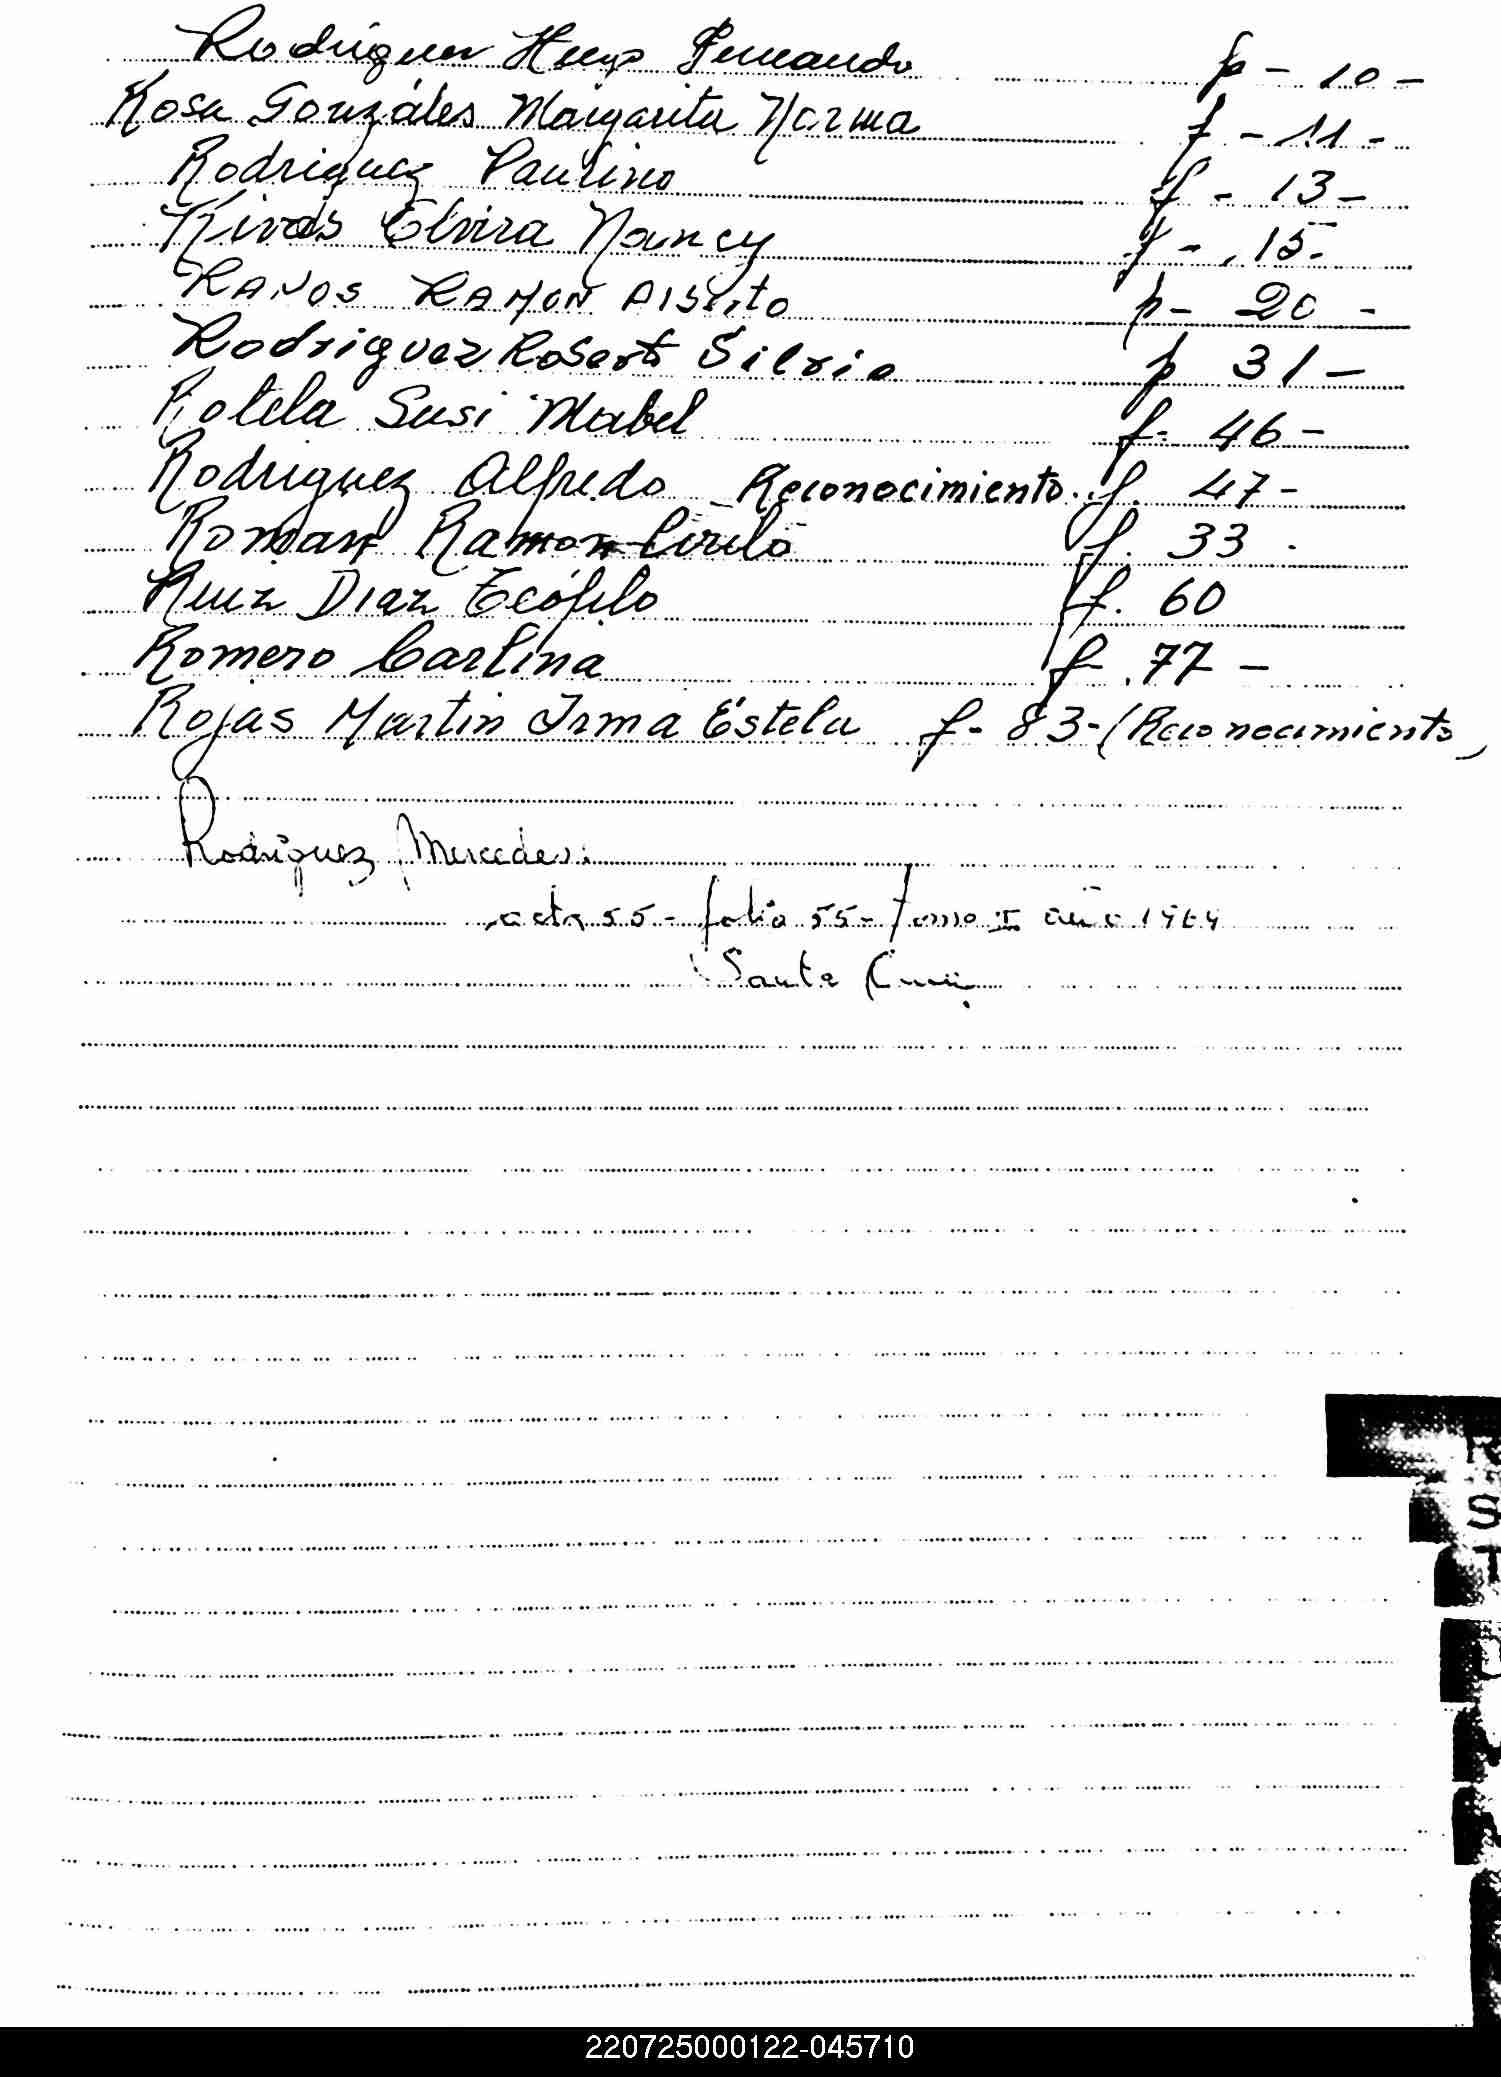 Rodriguez Hugo Fernando f - 10 -
Rosa Gonzáles Margarita Norma f - 11 -
Rodriguez Paulino f - 13 -
Rivas Elvira Nancy f - 15 -
RAMOS RAMON Alberto f - 20 -
Rodriguez Roberto Silvio f 31 -
Rotela Susi Mabel f - 46 -
Rodriguez Alfredo Reconocimiento. f. 47 -
Roman Ramon Cirilo f. 33
Ruiz Diaz Teófilo f. 60
Romero Carlina f. 77 -
Rojas Martin Irma Estela f - 83 - (Reconocimiento)
Rodriguez Mercedes:
acta 55 - folio 55 - Tomo II año 1964
Santa
S
T
220725000122-045710